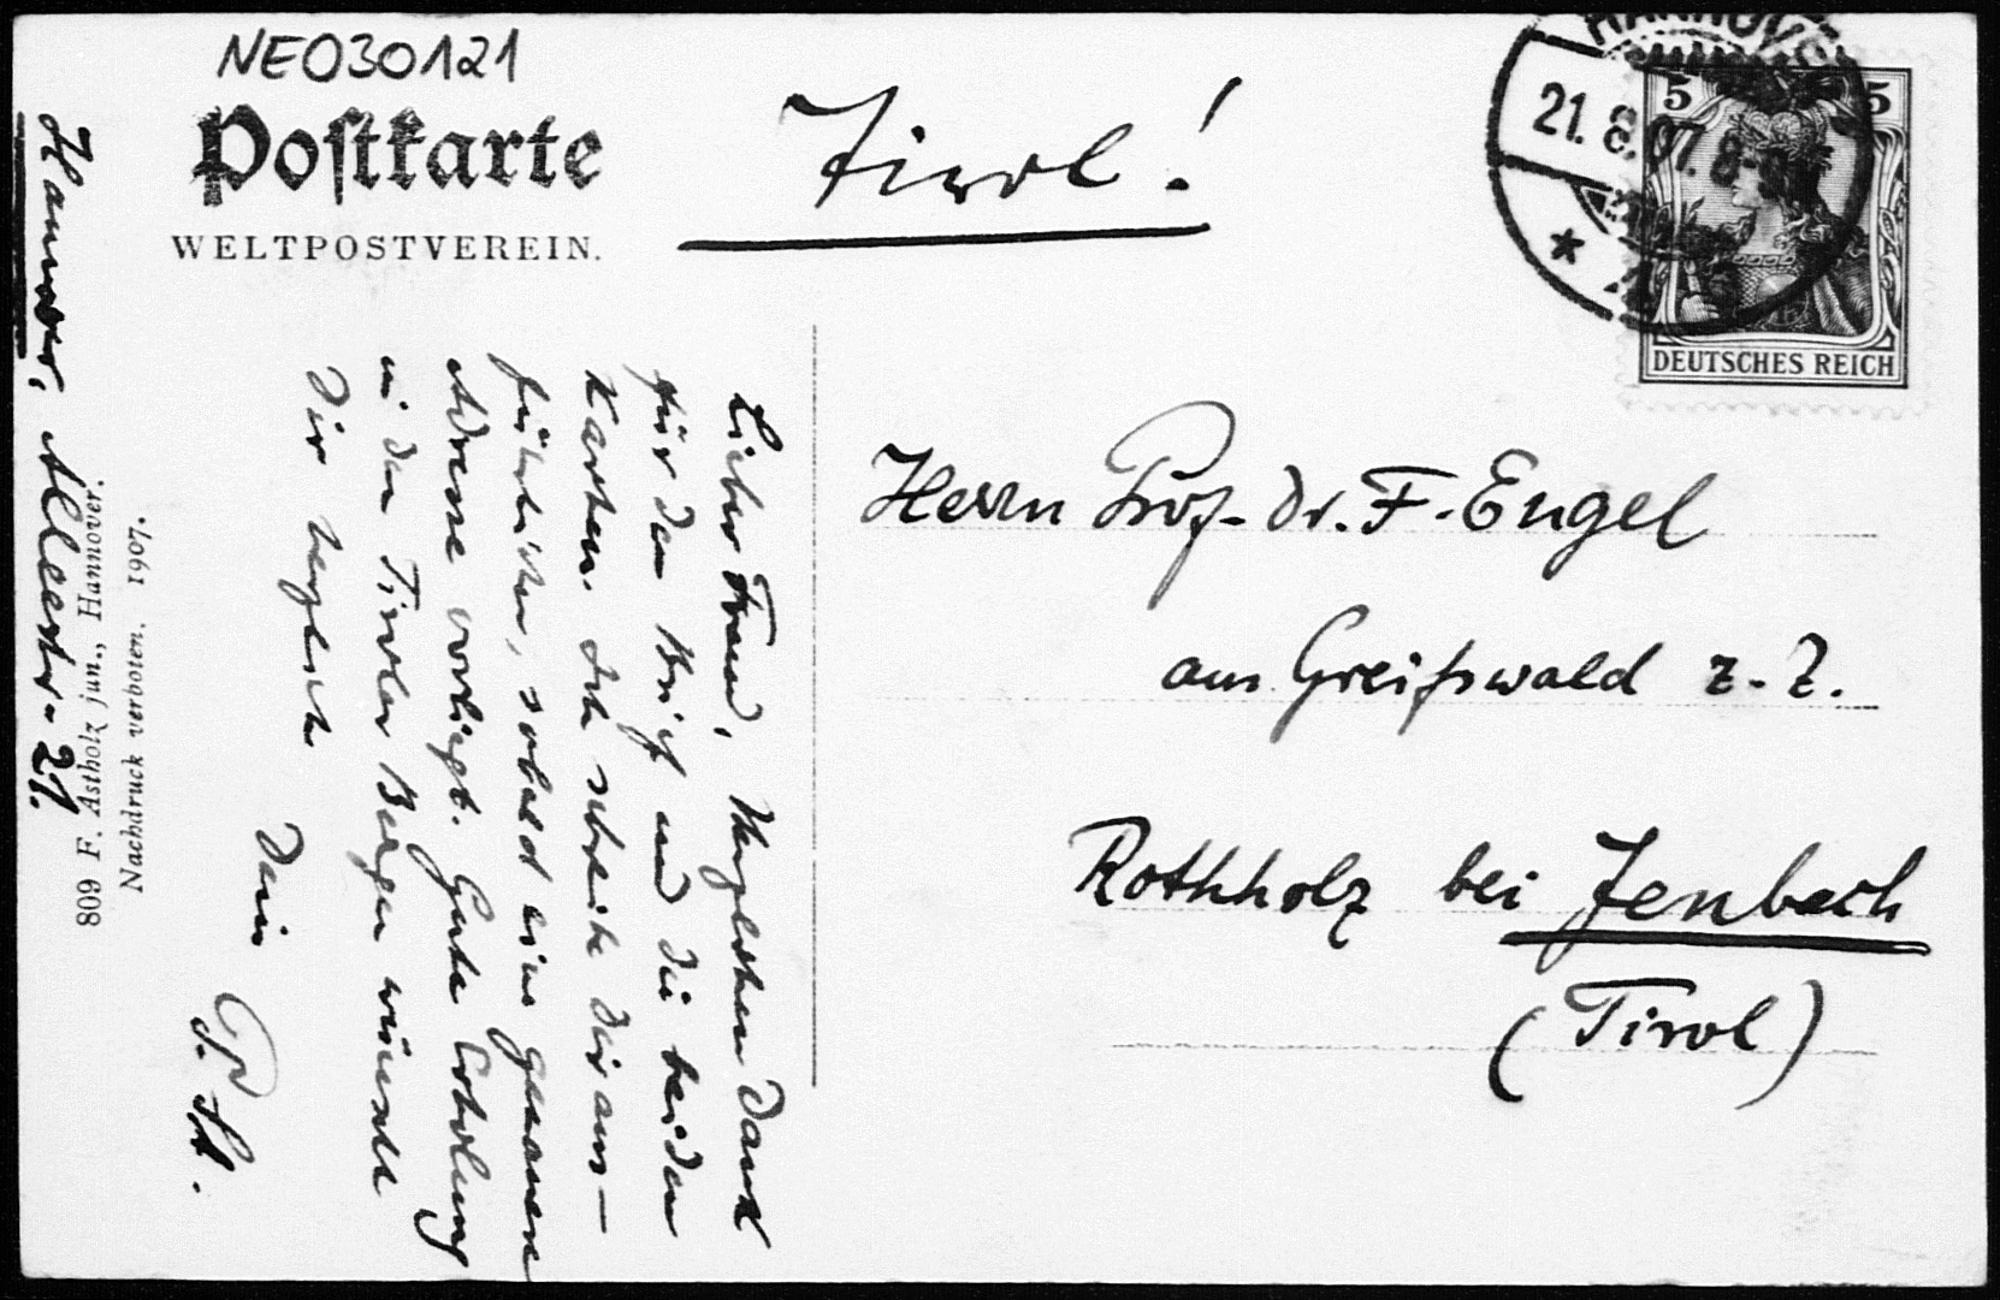 NEO30121
Postkarte
WELTPOSTVEREIN.
Tirol!
HANNOVER
21. 8. 07. 8
5 5
DEUTSCHES REICH
Herrn Prof. Dr. F. Engel
aus Greifswald z. Z.
Rothholz bei Jenbach
(Tirol)
Lieber Freund, Herzlichen Dank
für den Brief und die beiden
Karten. Ich schreibe Dir aus-
führlicher, sobald eine genauere
Adresse vorliegt. Gute Erholung
in den Tiroler Bergen wünscht
Dir herzlichst
Dein
P. St.
809 F. Astholz jun., Hannover.
Nachdruck verboten. 1907.
Hannover, 21.